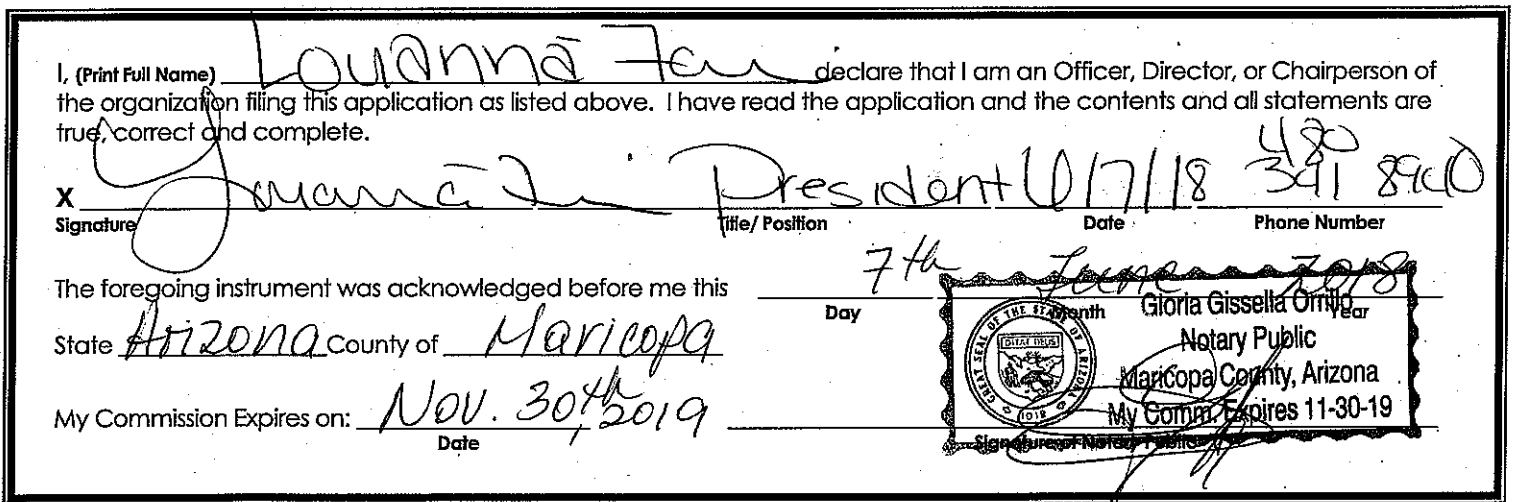 I, (Print Full Name) Louanna declare that I am an Officer, Director, or Chairperson of
the organization filing this application as listed above. I have read the application and the contents and all statements are
true, correct and complete.
480
X President 6/7/18 391
Signature Title/ Position Date Phone Number
7th June 2018
The foregoing instrument was acknowledged before me this
Day Month Year
State Arizona County of Maricopa
My Commission Expires on: Nov. 30th, 2019
Date
GREAT SEAL OF THE STATE OF ARIZONA
DITAT DEUS
1912
Gloria Gissella Orrillo
Notary Public
Maricopa County, Arizona
My Comm. Expires 11-30-19
Signature of Notary Public